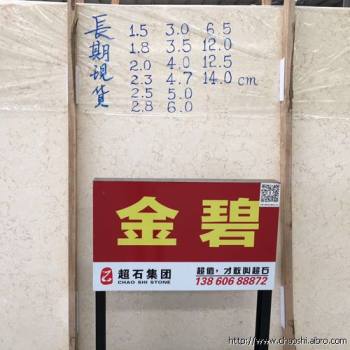 長期現貨
1.5 3.0 6.5
1.8 3.5 12.0
2.0 4.0 12.5
2.3 4.7 14.0 cm
2.5 5.0
2.8 6.0
金碧
超石集团
CHAO SHI STONE
超值，才敢叫超石
138 606 88872
http://www.chaoshi.abro.com